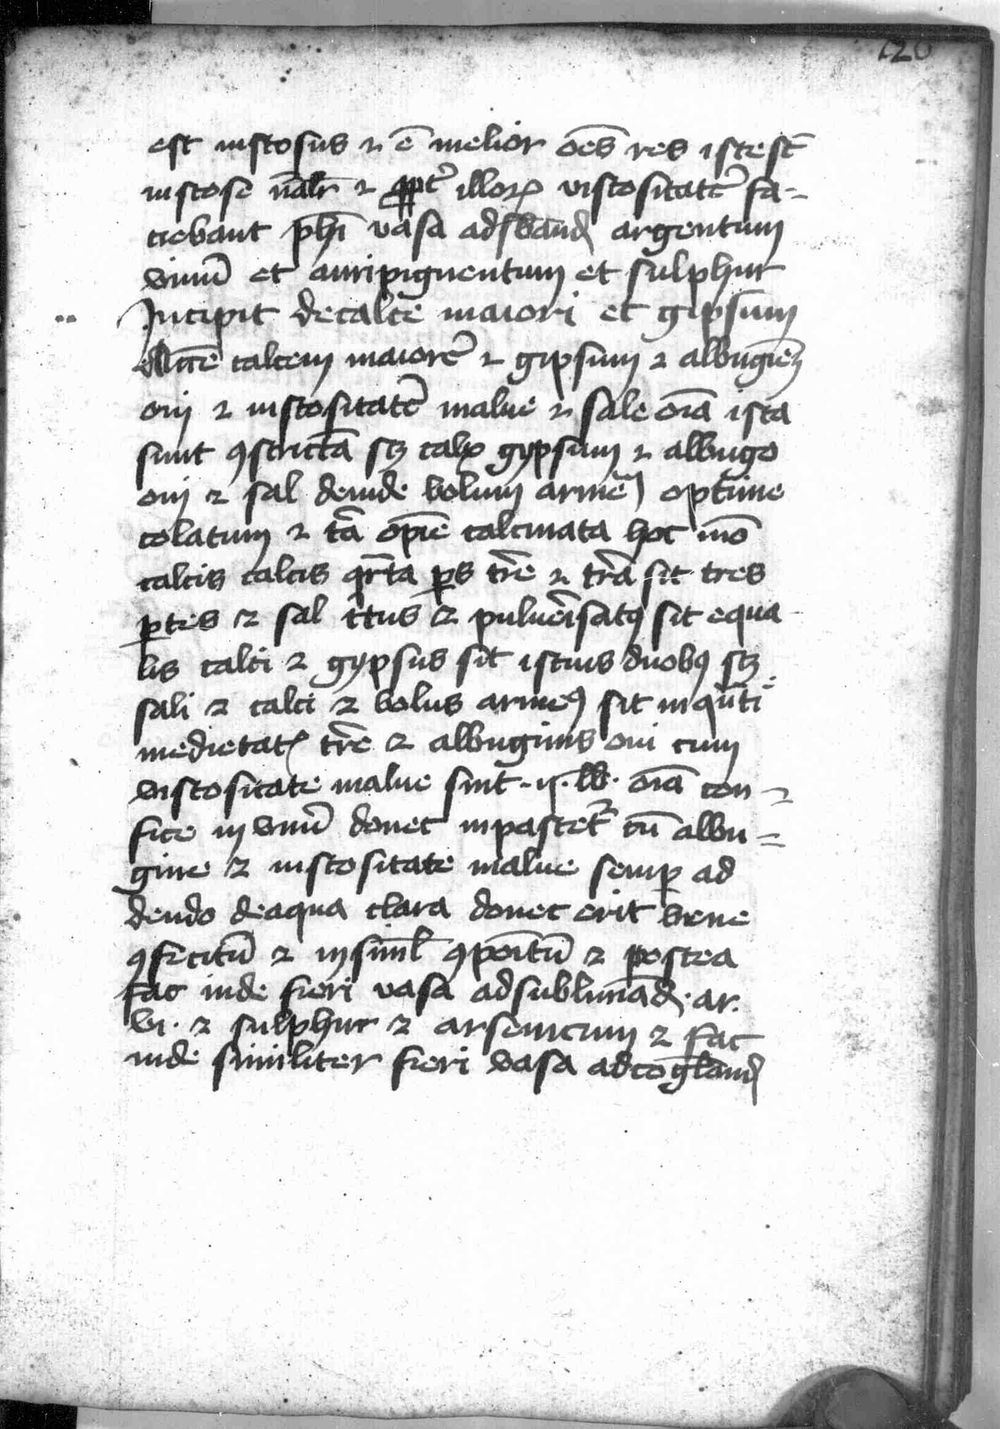 120
est uiscosus ⁊ ē melior oēs res iste st̄
uiscose nālr̄ ⁊ ꝓpt̄ illoꝝ viscositatē fa-
ciebant phī vasa ad sbāand argentum
viuū et auripigmentum et sulphur
Incipit de calce maiori et gipsum
calcem maiorē ⁊ gipsum ⁊ albugiēꝫ
oui ⁊ uiscositatē malue ⁊ sale oīa ista
sunt ꝯstricta sꝫ calx gypsum ⁊ albugo
oui ⁊ sal deinde bolum armēꝫ optime
colatum ⁊ t̄ra opīe calcinata hoc mō
calcis calcis qr̄ta ꝑs tr̄e ⁊ tr̄a sit tres
ꝑtes ⁊ sal t̄tus ⁊ puluerisatꝰ sit equa
lis calci ⁊ gypsus sit istius duobꝰ sꝫ
sali ⁊ calci ⁊ bolus armeꝰ sit in qūti
medietatꝭ tr̄e ⁊ albuginis oui cum
viscositate malue sint .ij. lb. oīa con-
fice in vnū donec inpastet᷑ cū albu-
gine ⁊ uiscositate malue semꝑ ad
dendo de aqua clara donec erit bene
ꝯfectū ⁊ in simł ꝯpoītū ⁊ postea
fac inde fieri vasa ad sublimād. ar.
vi. ⁊ sulphur ⁊ arsenicum ⁊ fac
inde similiter fieri vasa ad cōgland